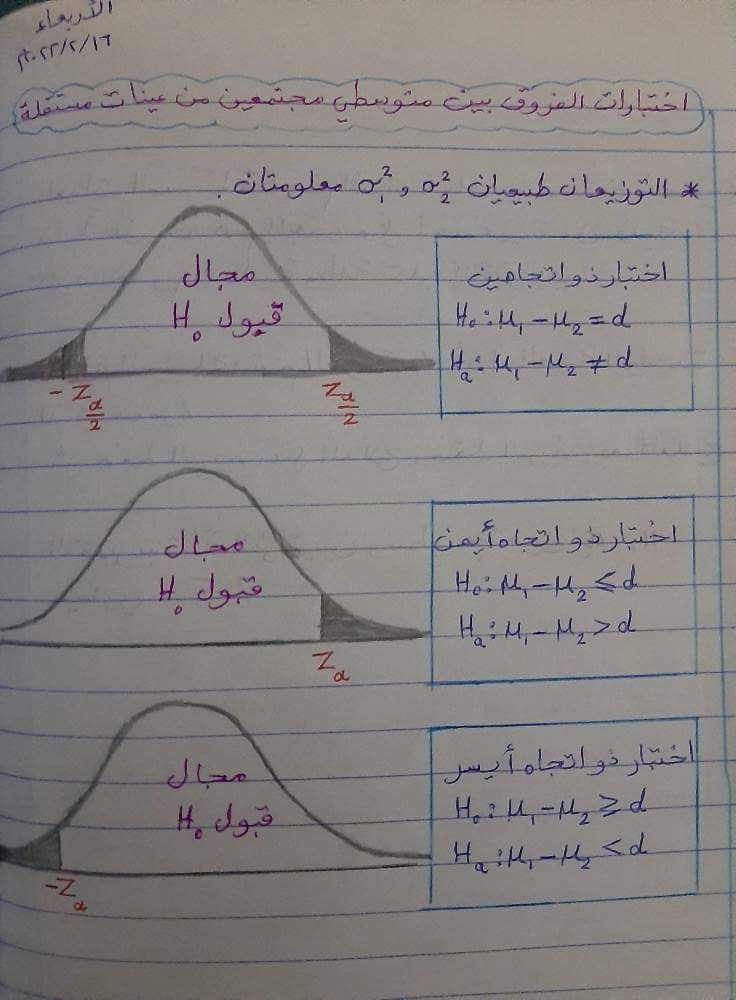 الأربعاء
٢٠٢٢/٢/١٦م
اختبارات الفروق بين متوسطي مجتمعين من عينات مستقلة
* التوزيعان طبيعيان σ₁² و σ₂² معلومتان.
اختبار ذو اتجاهين
H₀: μ₁ - μ₂ = d
Hₐ: μ₁ - μ₂ ≠ d
مجال
قبول H₀
-Z_{α/2}
Z_{α/2}
اختبار ذو اتجاه أيمن
H₀: μ₁ - μ₂ ≤ d
Hₐ: μ₁ - μ₂ > d
مجال
قبول H₀
Zₐ
اختبار ذو اتجاه أيسر
H₀: μ₁ - μ₂ ≥ d
Hₐ: μ₁ - μ₂ < d
مجال
قبول H₀
-Zₐ